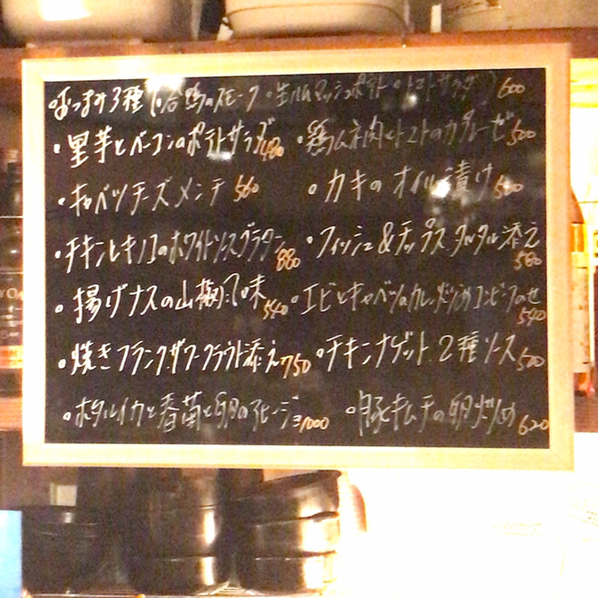 ・おつまみ3種(・合鴨のスモーク・生ハムマッシュポテト・トマトサラダ) 600
・里芋とベーコンのポテトサラダ 480 ・鶏ムネ肉とトマトのカプレーゼ 500
・キャベツチーズメンチ 560 ・カキのオイル漬け
・チキンとキノコのホワイトソースグラタン 880 ・フィッシュ&チップス タルタル添え 580
・揚げナスの山椒 味 540 ・エビとキャベツのカレー炒め のせ 540
・焼きフランク ザワークラウト添え 750 ・チキンナゲット 2種ソース 500
・ホタルイカと春菊と卵のアヒージョ 1000 ・豚とキムチの卵炒め 620